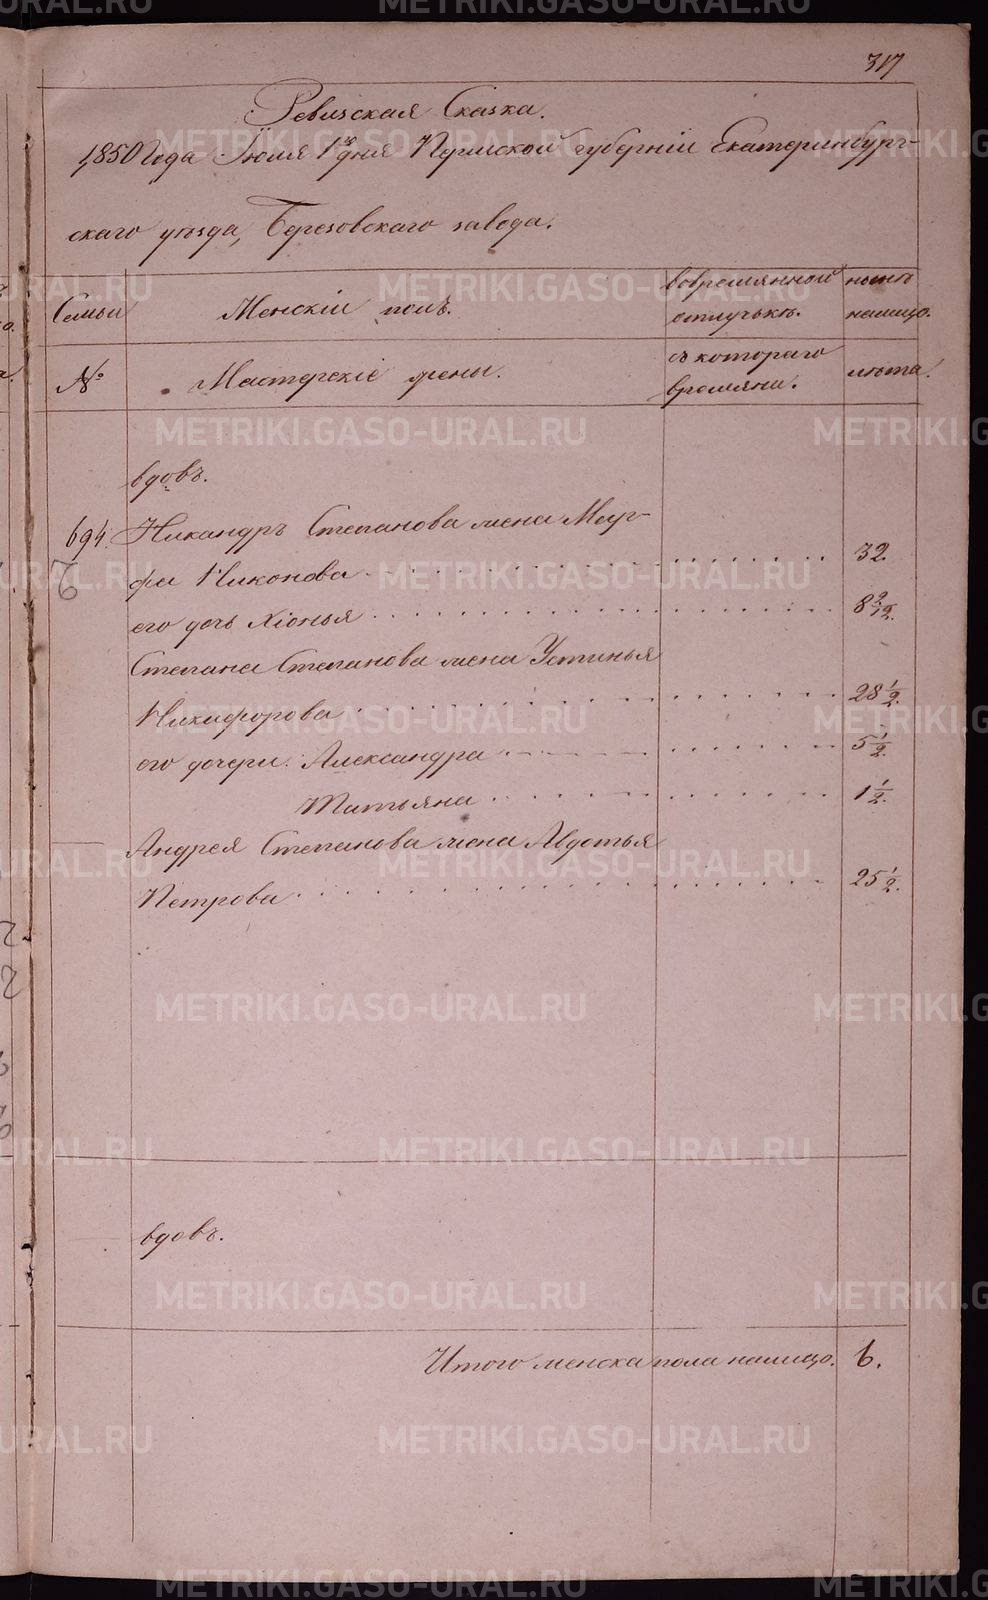 317
Ревизская Сказка.
1850 года Июля 1го дня Пермской губернiи Екатеринбург-
скаго уѣзда, Березовскаго завода.
Семьи
Женскiй полъ.
вовремянной
отлучькѣ.
нынѣ
налицо.
№
Мастерскiе жены.
съ котораго
времяни.
лѣта.
вдовъ.
694.
Никандръ Степанова жена Мар-
фа Никонова 32.
6
его дочь Хiонья 8 2/12.
Степана Степанова жена Устинья
Никифорова 28 1/2.
его дочери: Александра 5 1/2.
Татьяна 1 1/2.
Андрея Степанова жена Авдотья
Петрова 25 1/2.
вдовъ.
Итого женска пола налицо. 6.
METRIKI.GASO-URAL.RU